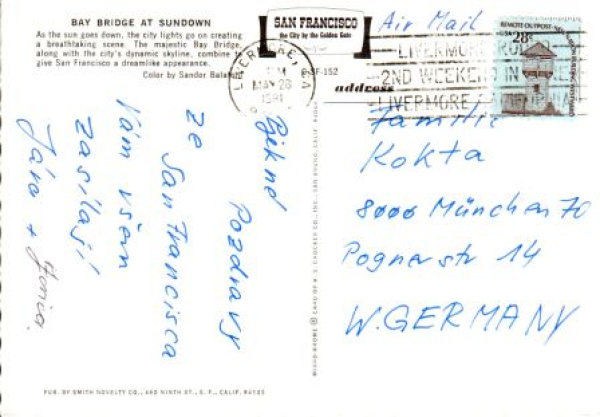 BAY BRIDGE AT SUNDOWN
As the sun goes down, the city lights go on creating
a breathtaking scene. The majestic Bay Bridge,
along with the city's dynamic skyline, combine to
give San Francisco a dreamlike appearance.
Color by Sandor Balatoni
SAN FRANCISCO
the City by the Golden Gate
SF-152
address
Air Mail
LIVERMORE, CA
PM
MAY 28
1981
LIVERMORE RODEO
2ND WEEKEND IN
LIVERMORE
REMOTE OUTPOST
USA 28c
Pěkné
Pozdravy
ze
San Francisca
Vám všem
zasílají
Jára +
Familie
Kokta
8000 München 70
Pognerstr 14
W. GERMANY
PUB. BY SMITH NOVELTY CO., 460 NINTH ST., S. F., CALIF. 94103